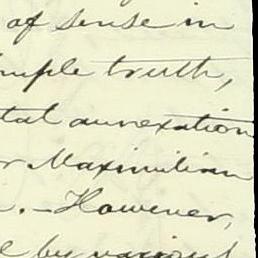 of sense in
simple truth,
total annexation
or Maximilian
. – However,
e by various